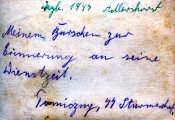 Dezb. 1944 Adlershorst
Meinem Burschen zur
Erinnerung an seine
Dienstzeit.
ϟϟ Sturmscha